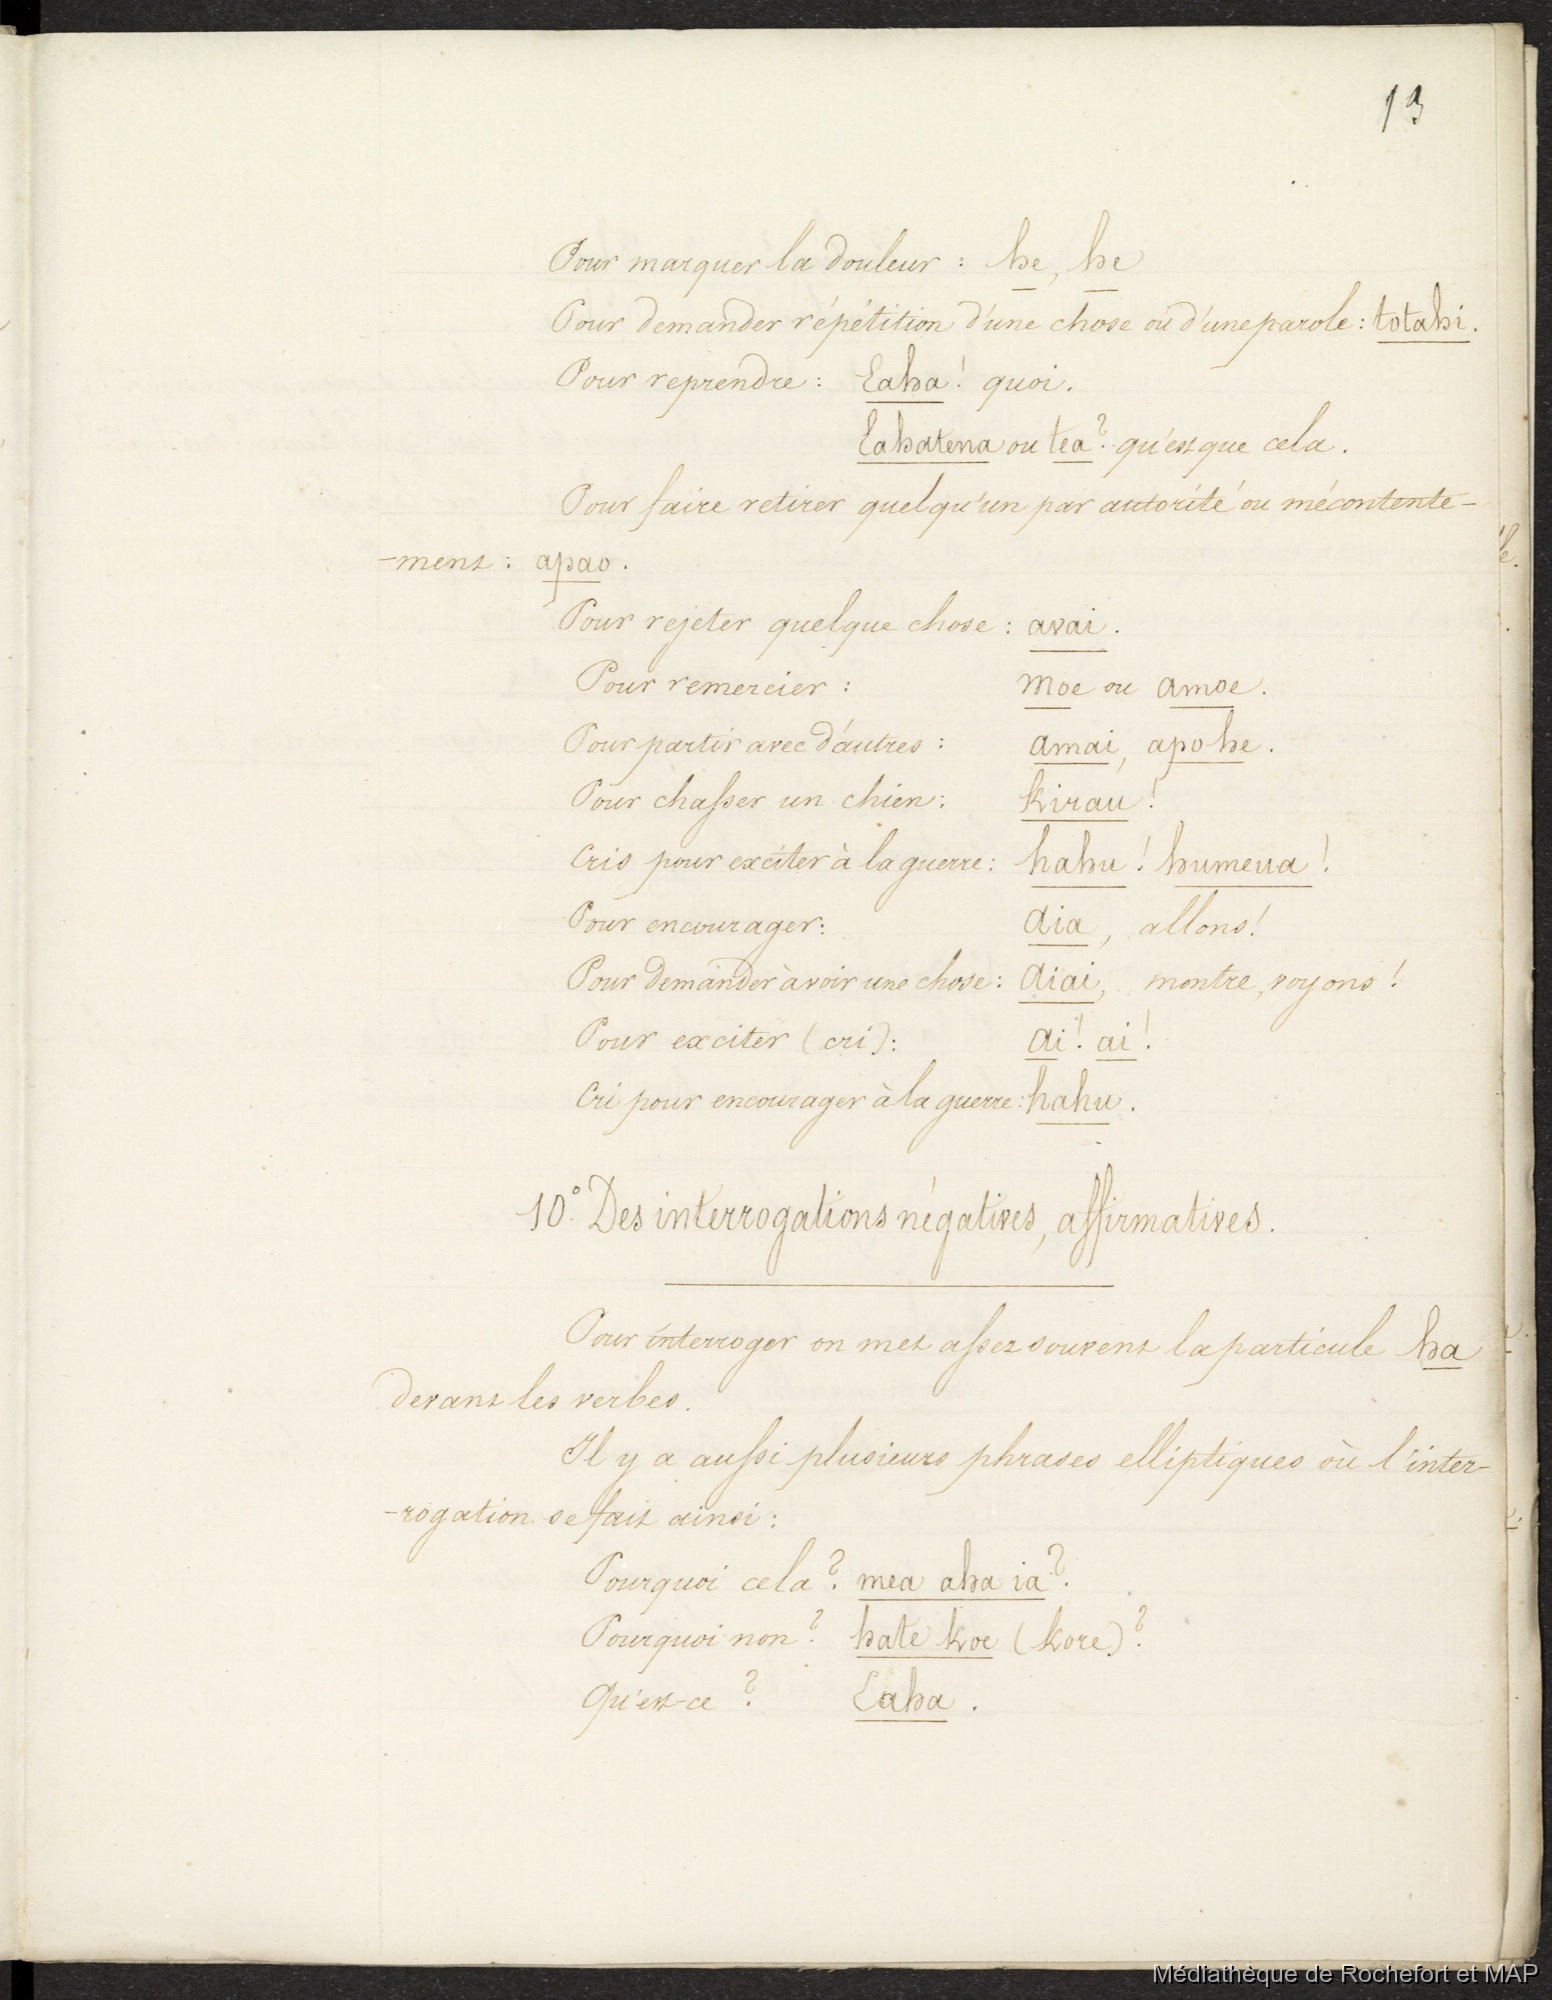 13
Pour marquer la douleur : he, he
Pour demander répétition d'une chose ou d'une parole : totahi.
Pour reprendre : Eaha ! quoi.
Eahatena ou tea ? qu'est que cela.
Pour faire retirer quelqu'un par autorité ou mécontente-
-ment : apao.
Pour rejeter quelque chose : avai.
Pour remercier : moe ou amoe.
Pour partir avec d'autres : amai, apohe.
Pour chasser un chien : kirau !
Cris pour exciter à la guerre : hahu ! humeua !
Pour encourager : aia, allons !
Pour demander à voir une chose : aiai, montre, voyons !
Pour exciter (cri) : ai ! ai !
Cri pour encourager à la guerre : hahu.
10° Des interrogations négatives, affirmatives.
Pour interroger on met assez souvent la particule ha
devant les verbes.
Il y a aussi plusieurs phrases elliptiques où l'inter-
-rogation se fait ainsi :
Pourquoi cela ? mea aha ia ?
Pourquoi non ? hate koe (kore) ?
Qu'est-ce ? Eaha.
Médiathèque de Rochefort et MAP